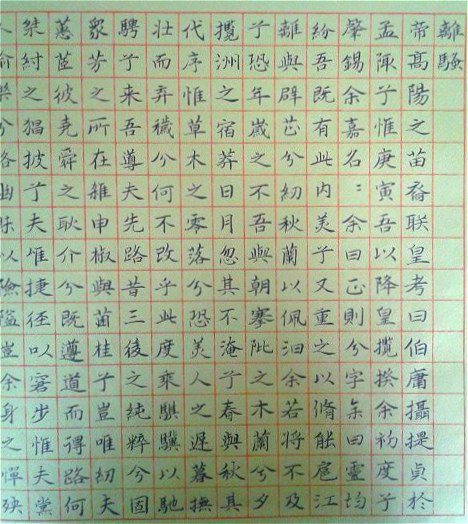 離騷
帝髙陽之苗裔联皇考曰伯庸攝提貞於
孟陬子惟庚寅吾以降皇攬揆余初度子
肇錫余嘉名：余曰正則兮字余曰靈均
紛吾既有此内美子又重之以脩能扈江
離與辟芷兮紉秋蘭以佩汩余若將不及
子恐年歲之不吾與朝搴阰之木蘭兮夕
攬洲之宿莽日月忽其不淹子春與秋其
代序惟草木之零落兮恐美人之遲暮撫
壯而弃穢兮何不改乎此度乘騏驥以馳
騁子来吾導夫先路昔三後之純粹兮固
衆芳之所在雜申椒與菌桂子豈唯紉夫
蕙茝彼堯舜之耿介兮既遵道而得路何
桀紂之猖披子夫惟捷徑以窘步惟夫黨
以險隘豈余身之憚殃